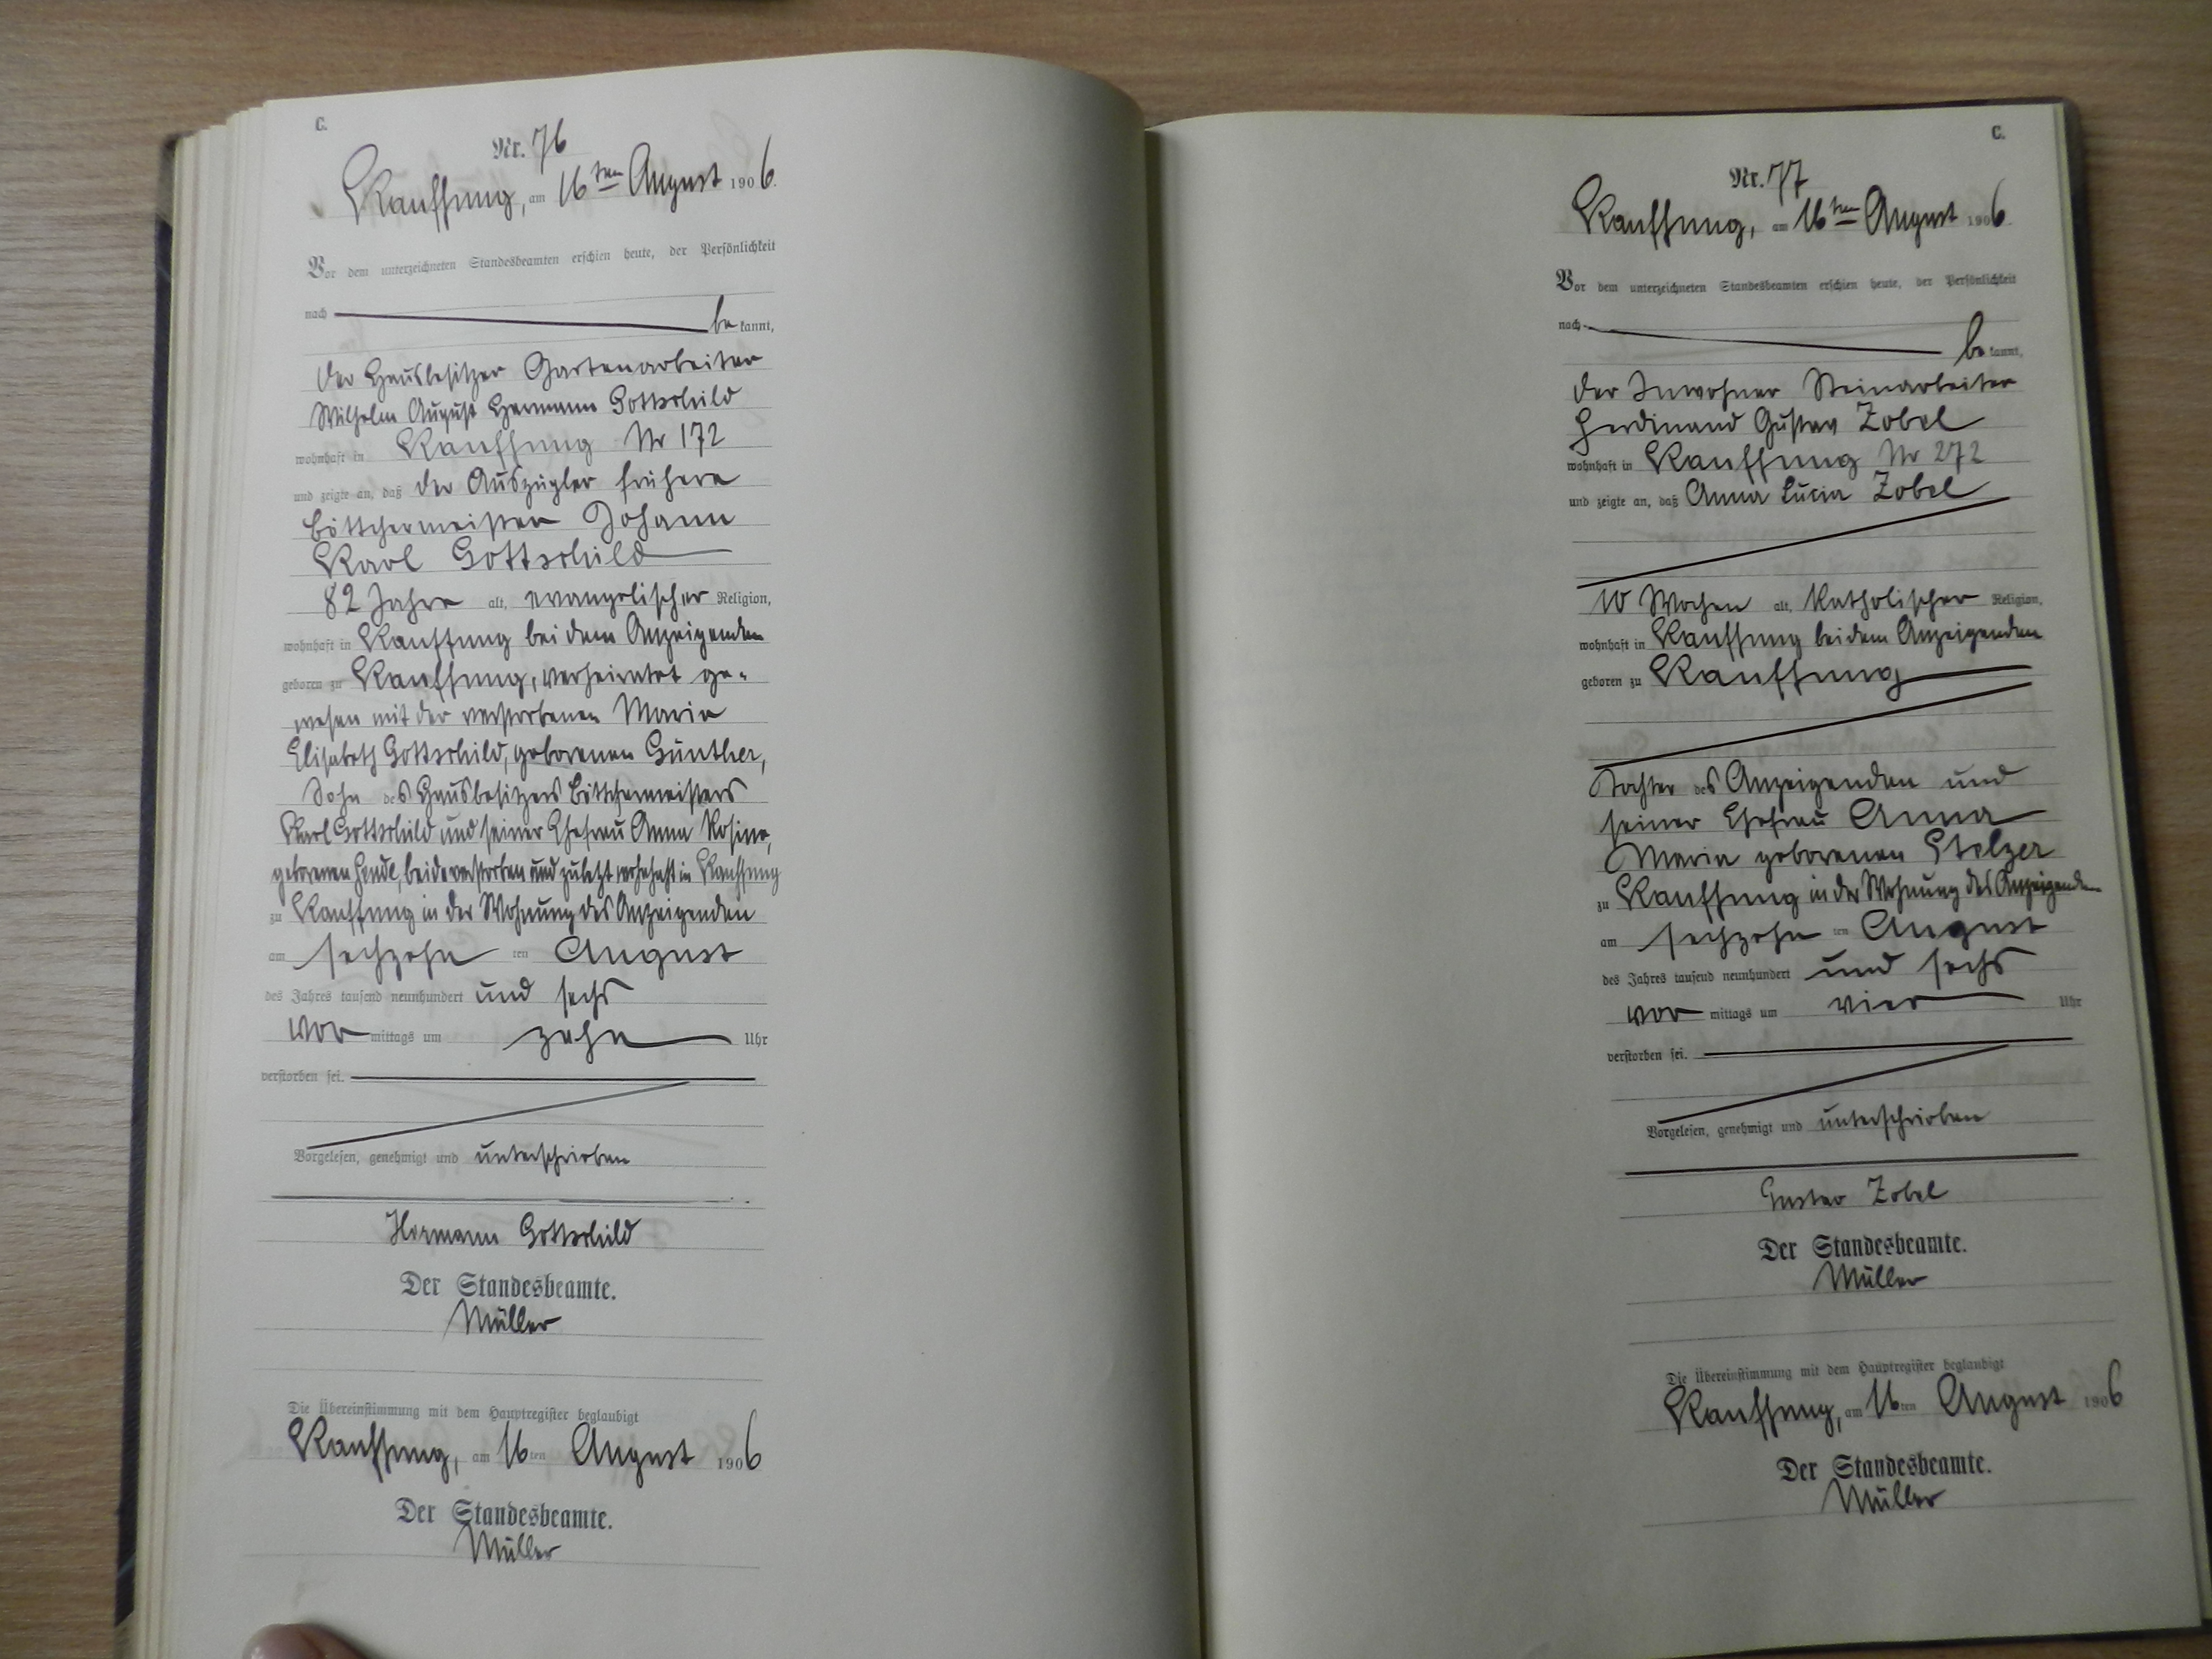 C.
Nr. 76
Kauffung, am 16ten August 1906.
Vor dem unterzeichneten Standesbeamten erschien heute, der Persönlichkeit
nach be kannt,
der Hausbesitzer Gartenarbeiter
Wilhelm August Hermann Gottschild
wohnhaft in Kauffung Nr 172
und zeigte an, daß der Auszügler frühere
Böttchermeister Johann
Karl Gottschild
82 Jahre alt, evangelischer Religion,
wohnhaft in Kauffung bei dem Anzeigenden
geboren zu Kauffung, verheiratet ge-
wesen mit der verstorbenen Maria
Elisabeth Gottschild, geborenen Günther,
Sohn des Hausbesitzers Böttchermeisters
Karl Gottschild und seiner Ehefrau Anna Rosina,
geborenen, beide verstorben und zuletzt wohnhaft in Kauffung
zu Kauffung in der Wohnung des Anzeigenden
am sechzehn ten August
des Jahres tausend neunhundert und sechs
vor mittags um zehn Uhr
verstorben sei.
Vorgelesen, genehmigt und unterschrieben
Hermann Gottschild
Der Standesbeamte.
Müller
Die Übereinstimmung mit dem Hauptregister beglaubigt
Kauffung, am 16ten August 1906
Der Standesbeamte.
Müller
C.
Nr. 77
Kauffung, am 16ten August 1906.
Vor dem unterzeichneten Standesbeamten erschien heute, der Persönlichkeit
nach be kannt,
der Inwohner Steinarbeiter
Ferdinand Gustav Zobel
wohnhaft in Kauffung Nr 272
und zeigte an, daß Anna Lucia Zobel
10 Wochen alt, katholischer Religion,
wohnhaft in Kauffung bei dem Anzeigenden
geboren zu Kauffung
Tochter des Anzeigenden und
seiner Ehefrau Anna
Maria geborenen Stelzer
zu Kauffung in der Wohnung des Anzeigenden
am sechzehn ten August
des Jahres tausend neunhundert und sechs
vor mittags um vier Uhr
verstorben sei.
Vorgelesen, genehmigt und unterschrieben
Gustav Zobel
Der Standesbeamte.
Müller
Die Übereinstimmung mit dem Hauptregister beglaubigt
Kauffung, am 16ten August 1906
Der Standesbeamte.
Müller